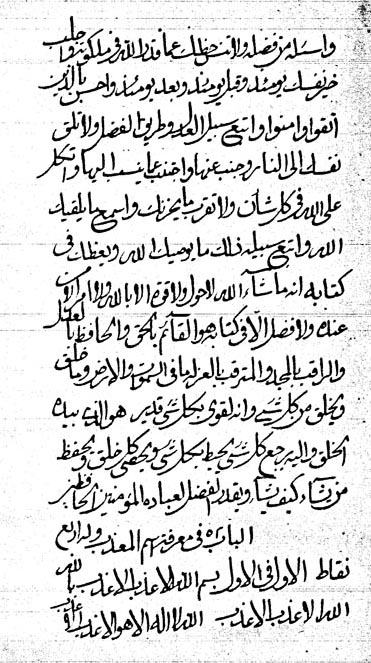 واسئله من فضله ولا تنس حظك عما قدر الله في ملكوته واجلب
خير نفسك يومئذ وقبل يومئذ وبعد يومئذ واحسن بالذين
اتقوا وامنوا واتبع سبيل العدل وطريق الفضل ولا تلق
نفسك الى النار وجنب عنها واجتنب عما ينسب اليها واتكل
على الله في كل شأن ولا تقرب ما يحزنك واسمع ما يلقيك
الله واتبع سبيله ذلك ما يوصيك الله ويعظك في
كتابه انه ما شاء الله لا حول ولا قوة الا بالله ولا امر الا من
عنده ولا فضل الا في كتابه هو القائم بالحق والحافظ بالعدل
والراقب بالمجد والمترقب بالعز له ما في السموات والارض وما خلق
ويخلق من كل شيء وانه لقوي بكل شيء قدير هو الذي بيده
الخلق واليه يرجع كل شيء يحيط بكل شيء ويحصي كل خلق ويحفظ
من يشاء كيف يشاء ويقدر الفضل لعباده المؤمنين الحافظين
الباب في معرفة اسم المعذب وله اربع
نقاط الاول في الاول بسم الله الاعذب الاعذب بالله
الله الاعذب الاعذب الله لا اله الا هو الاعذب